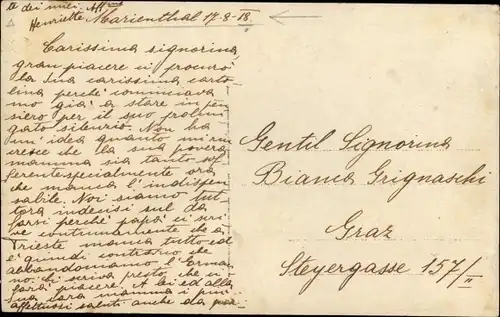 te dei miei. Aff.ma
Henriette Marienthal 17-8-18
Carissima signorina,
gran piacere ci procurò
la sua carissima carto-
lina perchè cominciava
mo già a stare in pen
siero per il suo prolun
gato silenzio. Non ha
un idea quanto mi rin
cresce che la sua povera
mamma sia tanto sof
ferente specialmente ora
che manca l'indispen
sabile. Noi siamo tut
tora indecisi sul da
farsi perchè papà ci scri
ve continuamente che a
Trieste manca tutto ed
è quindi contrario che
abbandoniamo l'Erma
no. Mi scriva presto, che mi
farà piacere. A lei ed alla
sua cara mamma i più
affettuosi saluti anche da par-
Gentil Signorina
Bianca Grignaschi
Graz
Steyergasse 157/I